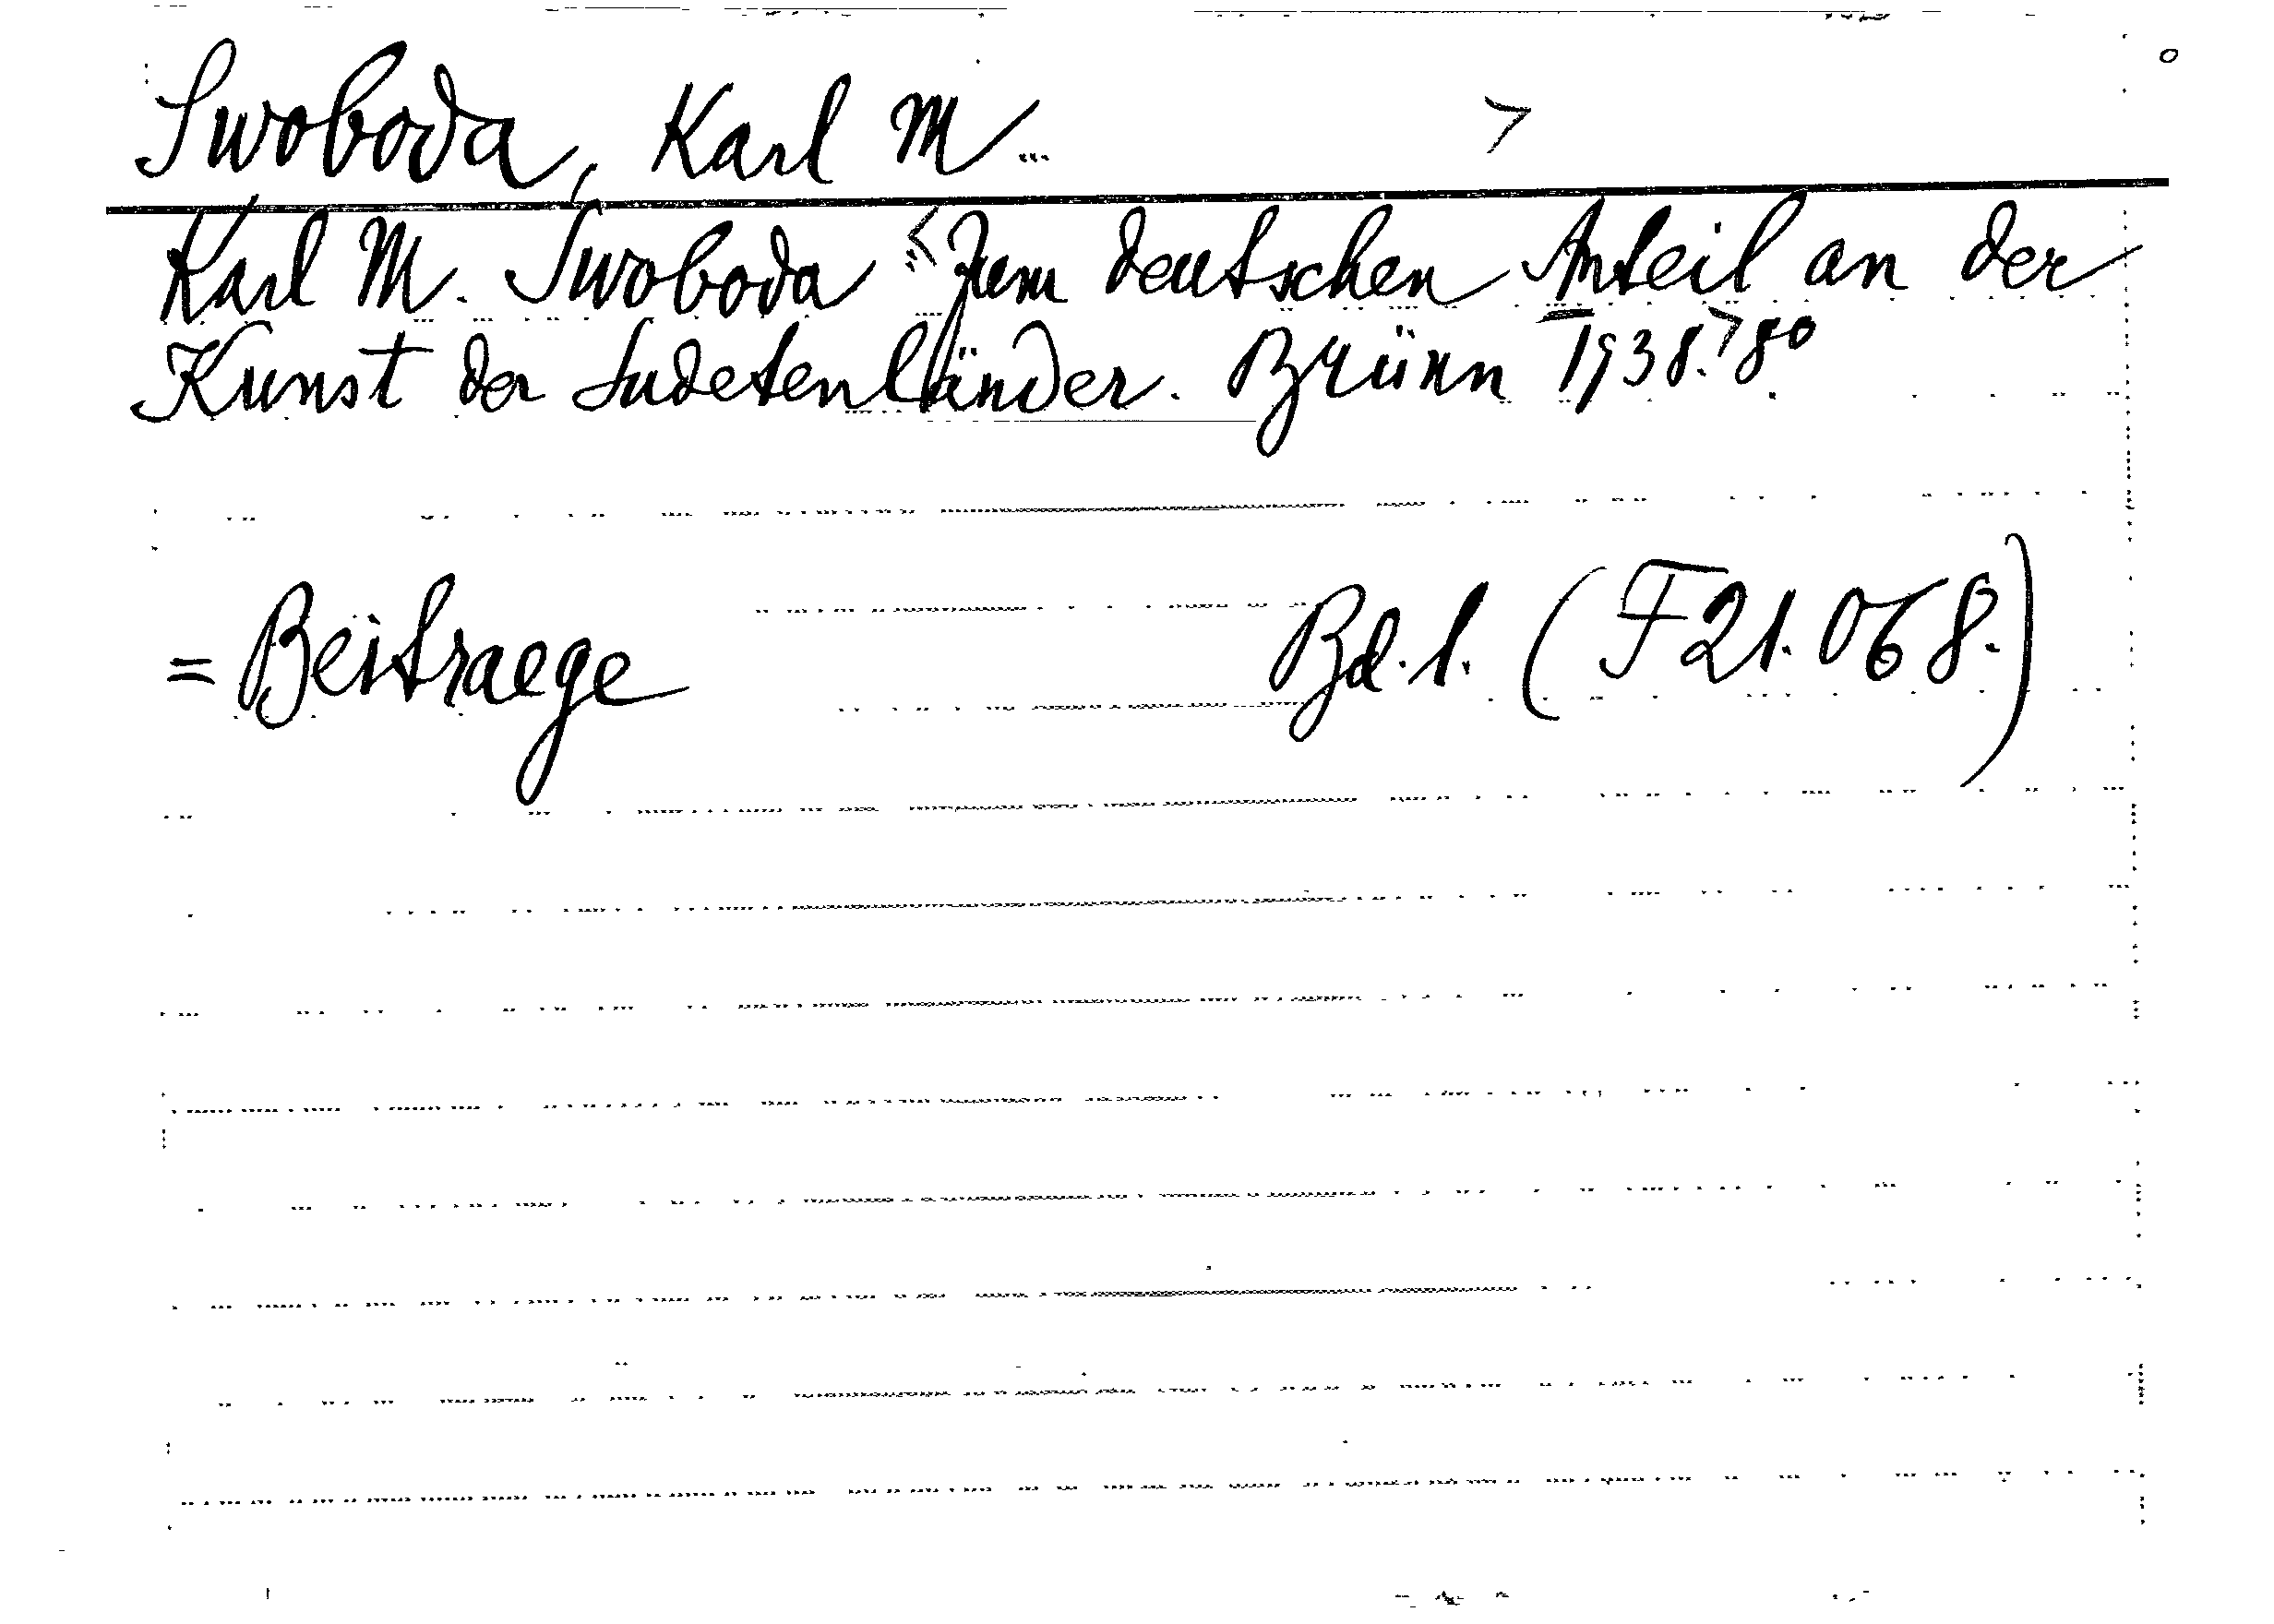 Swoboda, Karl M. >
Karl M. Swoboda < Zum deutschen Anteil an der
Kunst der Sudetenländer. Brünn 1938.> 8º.
= Beitraege Bd. 1. (F 21.068.)